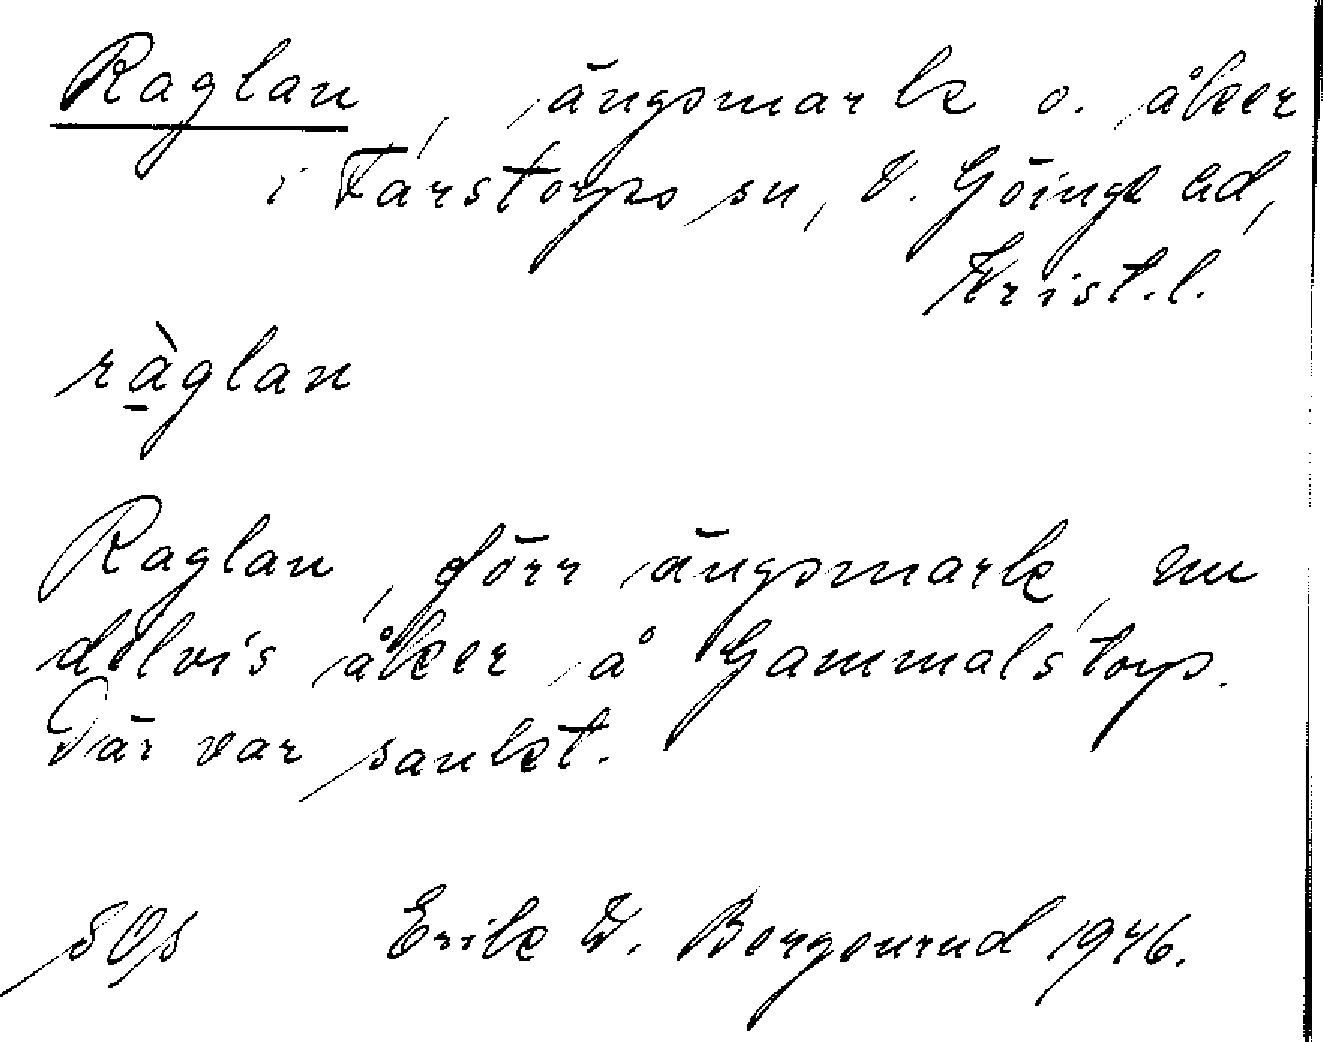 Raglan, ängsmark o. åker
i Farstorps sn, V. Göinge hd,
Krist.l.
ràglan
Raglan, förr ängsmark, nu
delvis åker å Gammalstorp.
Där var sankt.
Erik W. Bergenrud 1946.